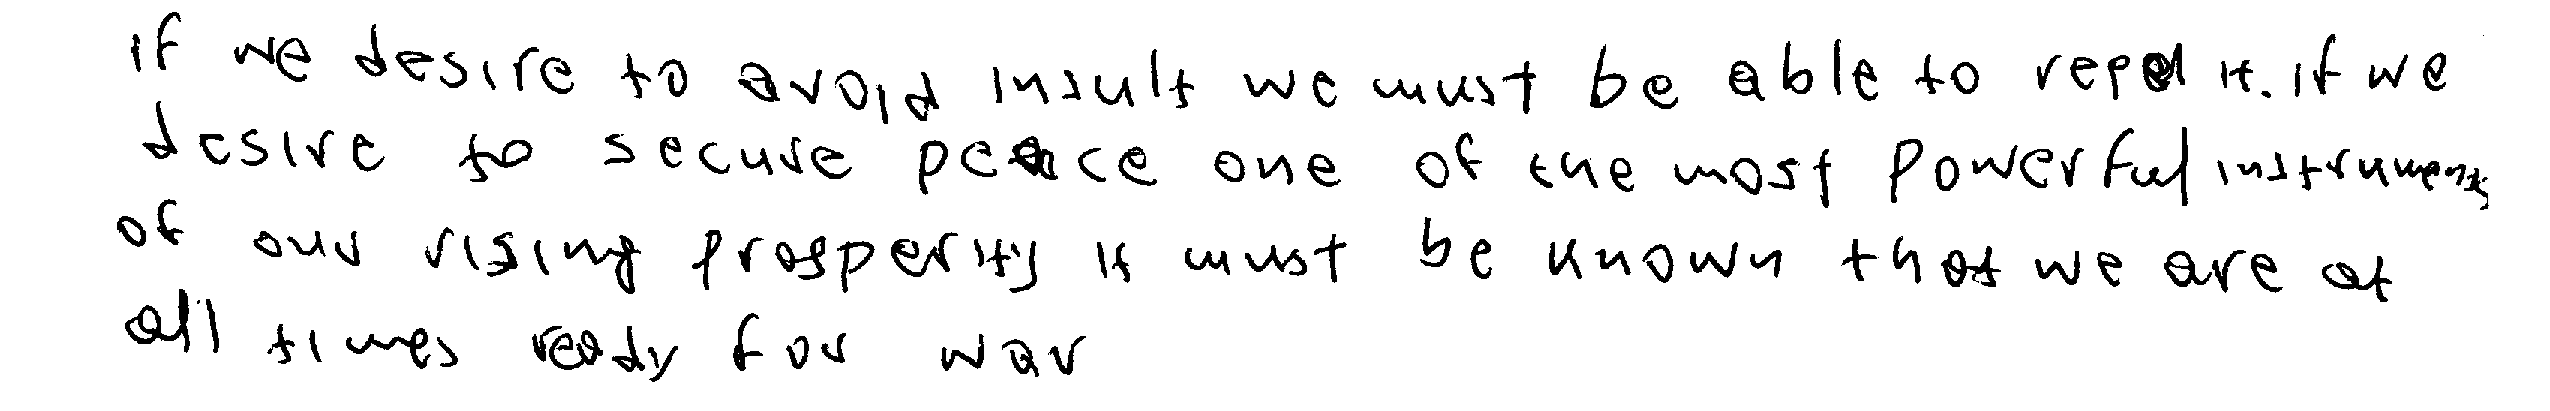 if we desire to avoid insult we must be able to repel it. if we
desire to secure peace one of the most powerful instruments
of our rising prosperity it must be known that we are at
all times ready for war